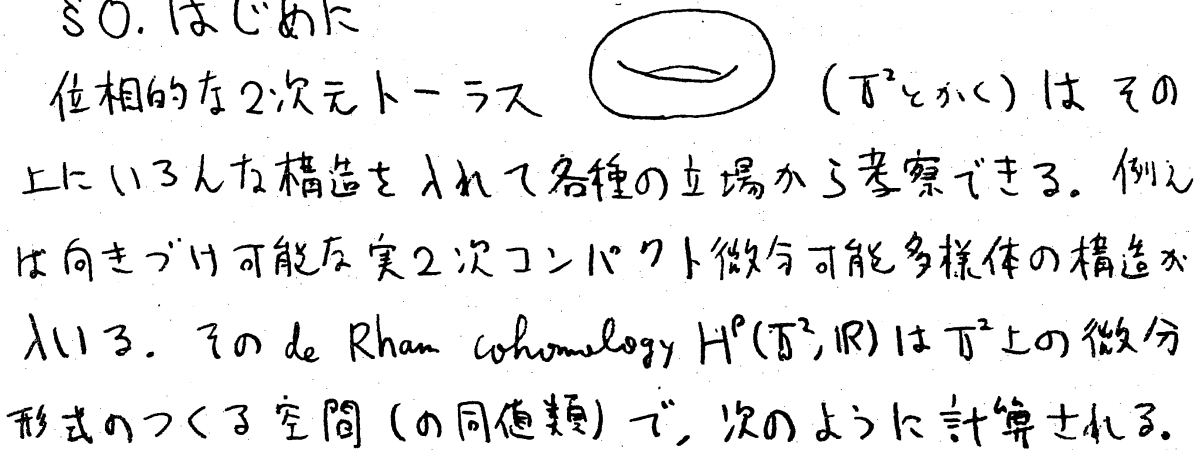 §0. はじめに
位相的な2次元トーラス (𝕋²とかく) は その
上にいろんな構造を入れて各種の立場から考察できる。例え
ば向きづけ可能な実2次コンパクト微分可能多様体の構造が
入いる. その de Rham cohomology Hᵖ(𝕋², ℝ) は 𝕋²上の微分
形式のつくる空間 (の同値類) で, 次のように計算される.